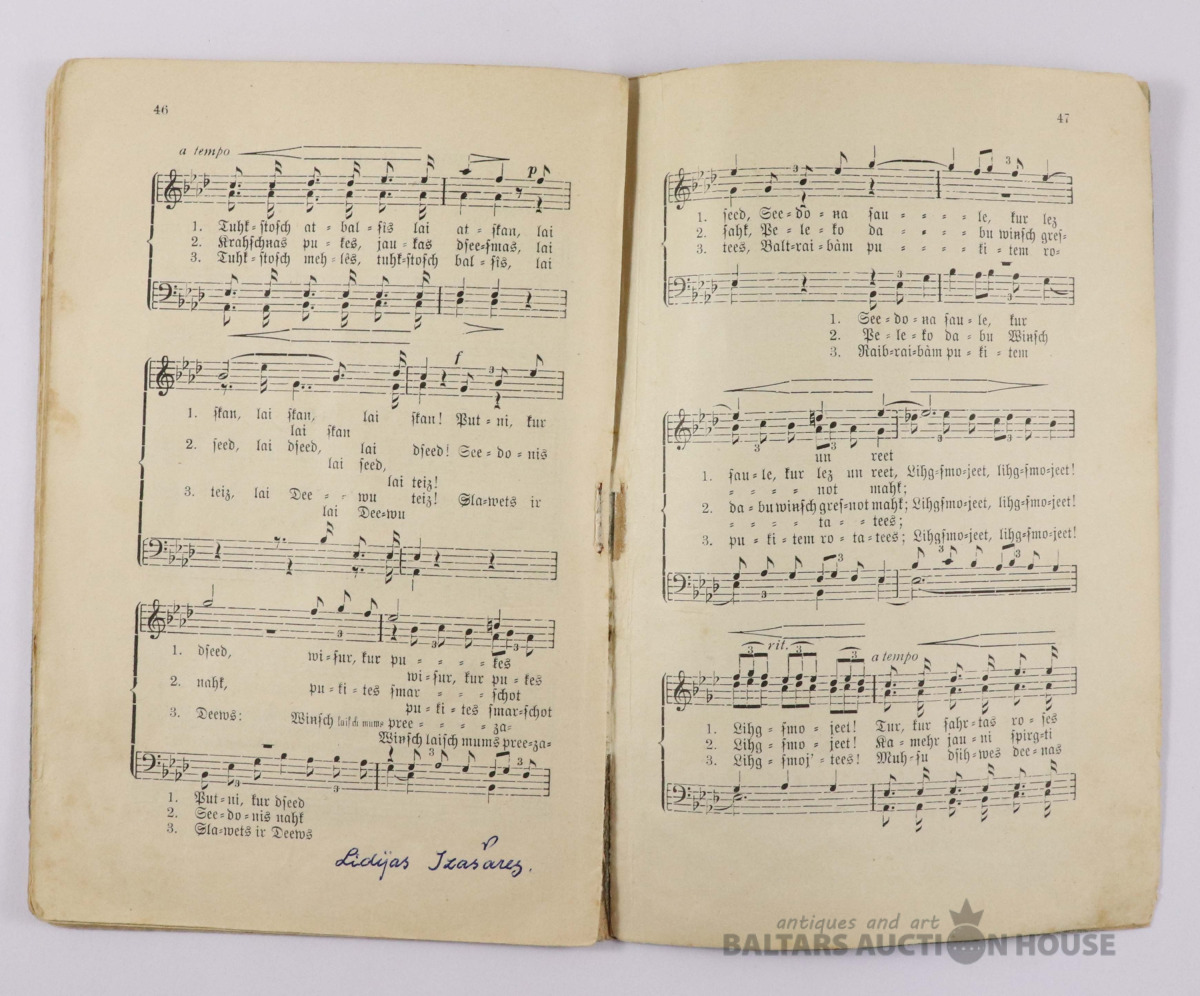 46
a tempo
p
1. Tuhk-stosch at-bal-sis lai at-skan, lai
2. Krahschnas pu-kes, jau-kas dsee-smas, lai
3. Tuhk-stosch meh-lês, tuhk-stosch bal-sis, lai
f
3
1. skan, lai skan, lai skan! Put-ni, kur
lai skan
2. seed, lai dseed, lai dseed! See-do-nis
lai seed,
lai teiz!
3. teiz, lai Dee--wu teiz! Sla-wets ir
lai Dee-wu
3 3
1. dseed, wi-sur, kur pu----kes
wi-sur, kur pu-kes
2. nahk, pu-ki-tes smar---schot
pu-ki-tes smar-schot
3. Deews: Winsch laisch mums pree----za-
Winsch laisch mums pree-za-
3 3 3 3
1. Put-ni, kur dseed
2. See-do-nis nahk
3. Sla-wets ir Deews
Lidijas
47
3 3
1. seed, See-do-na sau----le, kur lez
2. sahk, Pe-le-ko da----bu winsch gres-
3. tees, Balt-rai-bàm pu----ki-tem ro-
3 3
1. See-do-na sau-le, kur
2. Pe-le-ko da-bu Winsch
3. Raib-rai-bàm pu-ki-tem
3 3 3
un reet
1. sau-le, kur lez un reet, Lihg-smo-jeet, lihg-smo-jeet!
----not mahk;
2. da-bu winsch gres-not mahk; Lihgsmo-jeet, lihg-smo-jeet!
----ta-tees;
3. pu-ki-tem ro-ta-tees; Lihgsmo-jeet, lihg-smo-jeet!
3 3 3
rit.
3 3 3 a tempo
1. Lihg-smo-jeet! Tur, kur sahr-tas ro-ses
2. Lihg-smo-jeet! Ka-mehr jau-ni spirg-ti
3. Lihg-smoj'-tees! Muh-su dsih-wes dee-nas
antiques and art
BALTARS AUCTION HOUSE